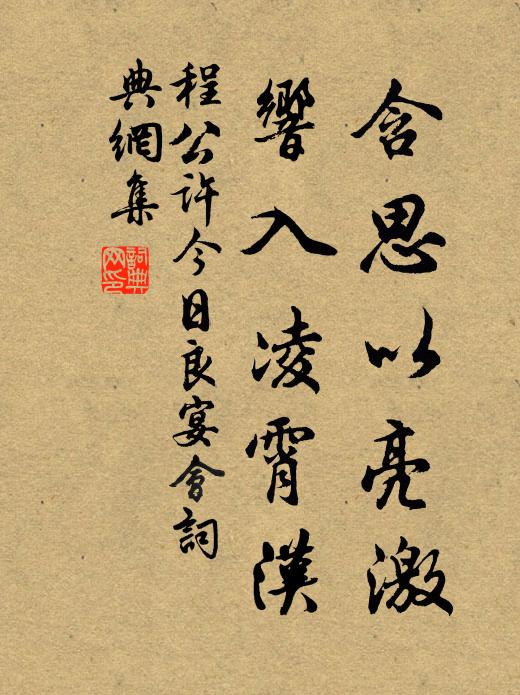 含思以亮激
響入凌霄漢
程公許今日良宴會詞
典網集
詞典
网印